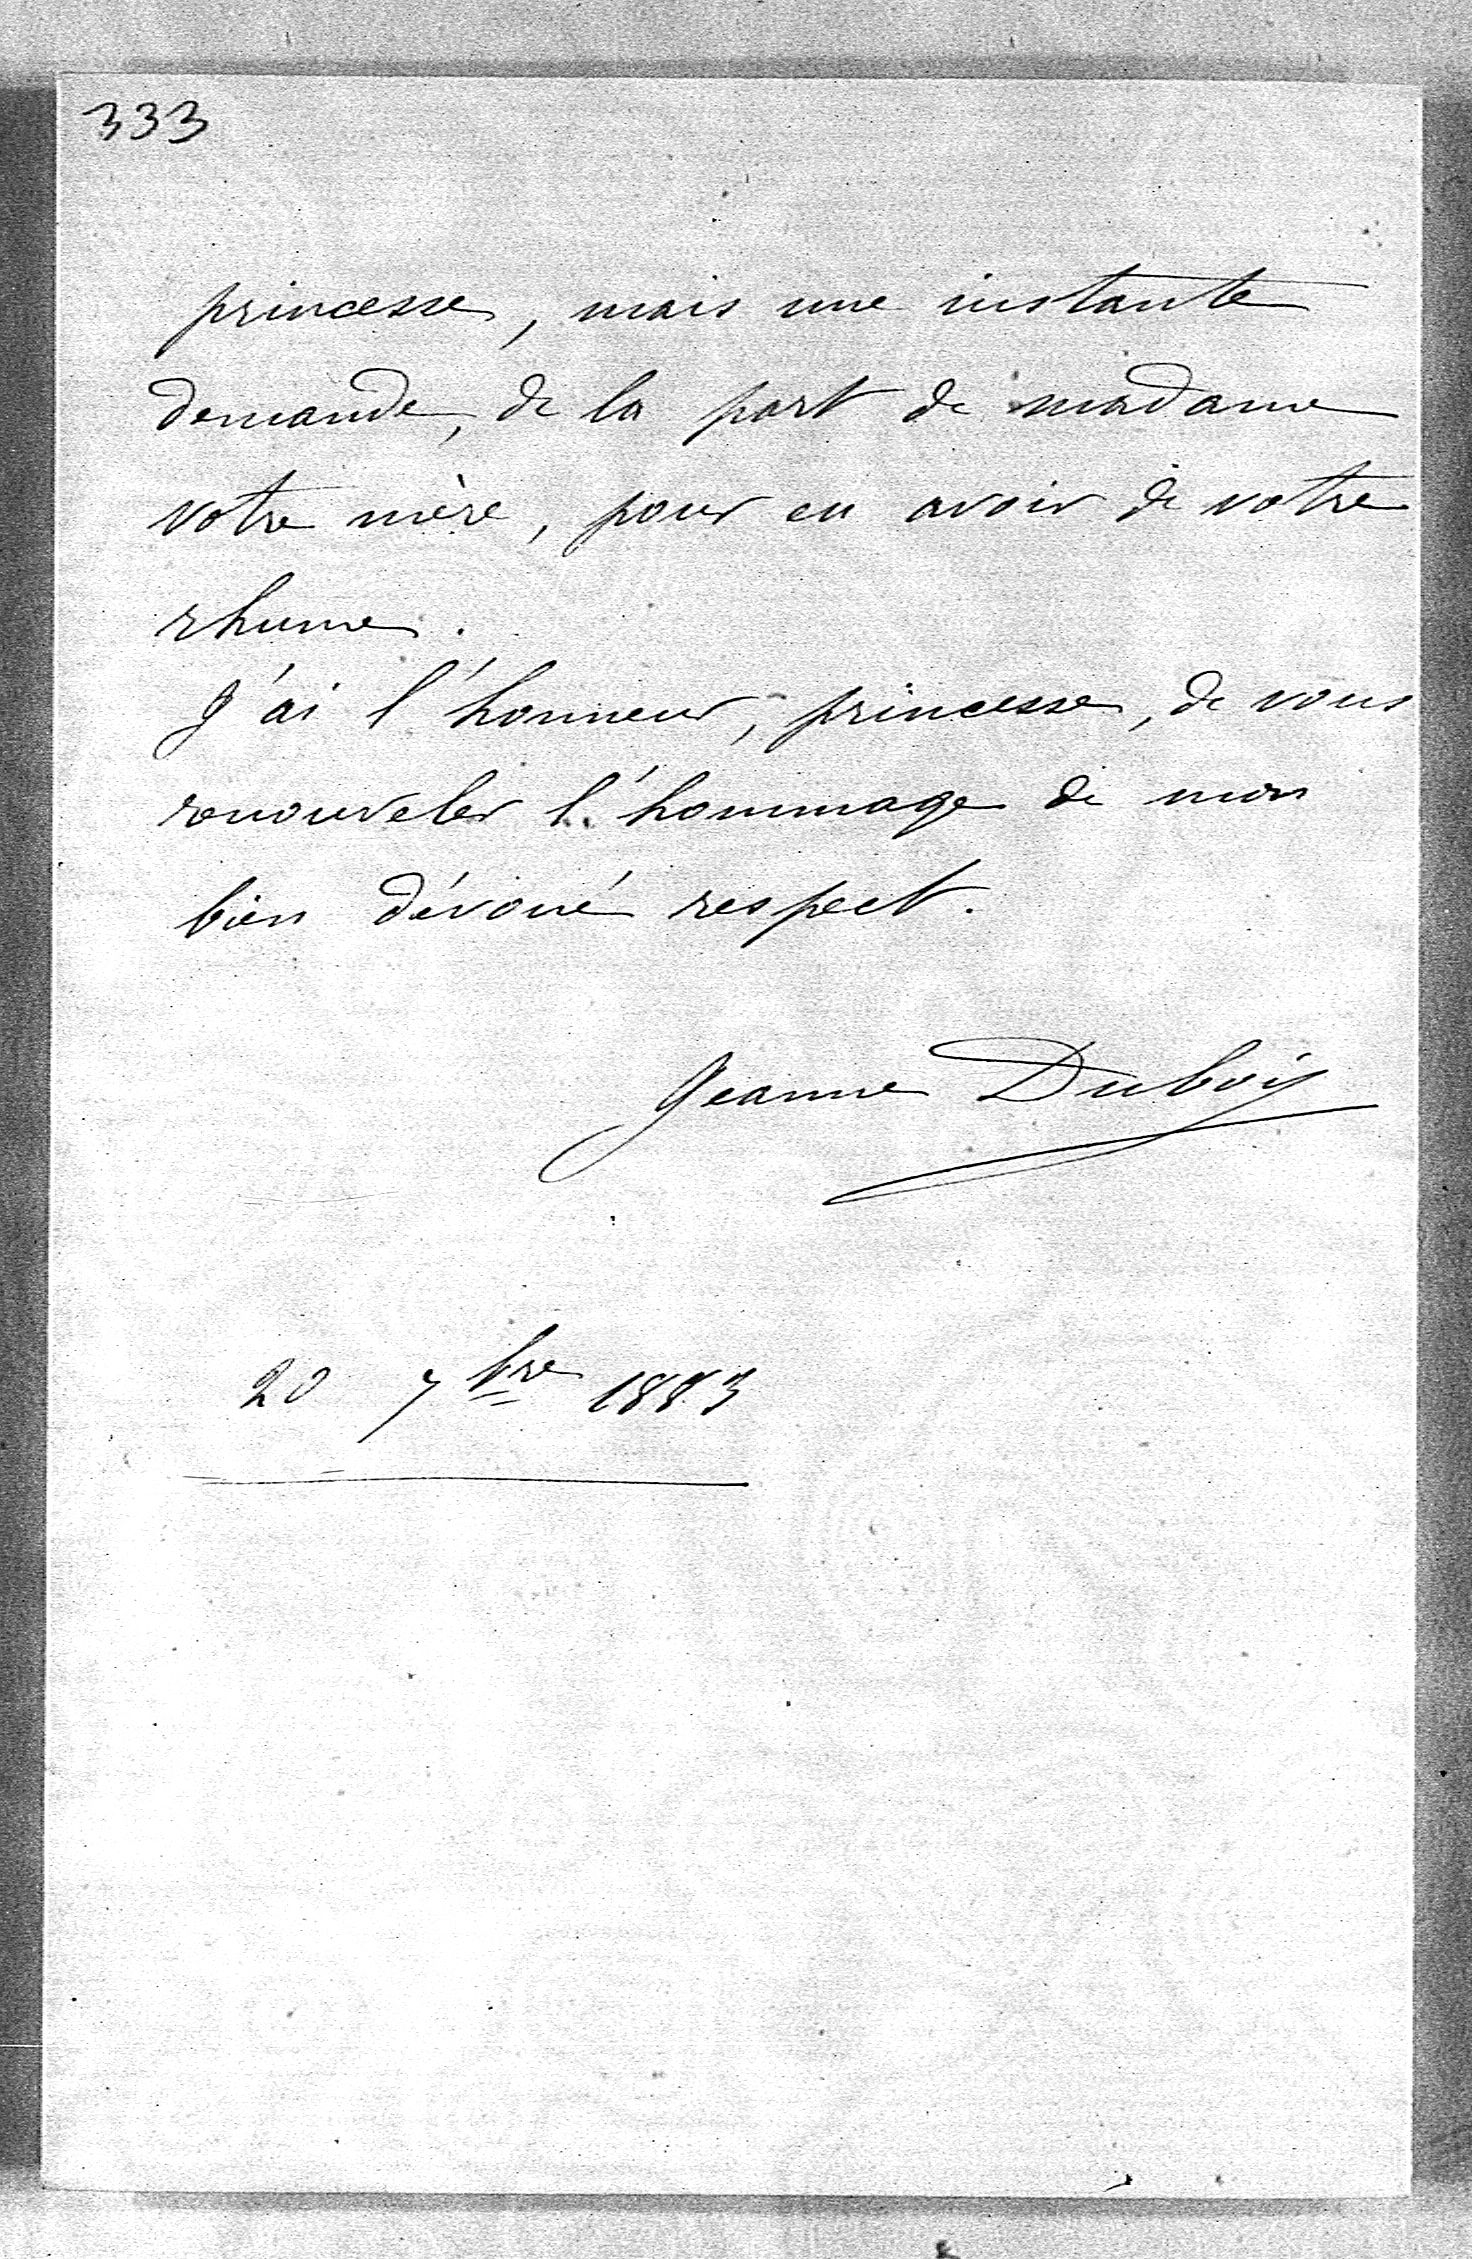 333
princesse, mais une instante
demande, de la part de madame
votre mère, pour en avoir de votre
rhume.
J'ai l'honneur, princesse, de vous
renouveler l'hommage de mon
bien dévoué respect.
Jeanne Dubois
20 7bre 1883